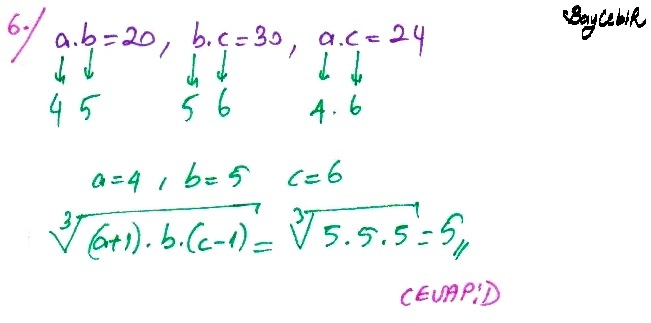 BayCebiR
6./ a.b=20, b.c=30, a.c=24
4 5 5 6 4.6
a=4, b=5 c=6
∛(a+1).b.(c-1) = ∛5.5.5 = 5,,
CEVAP:D